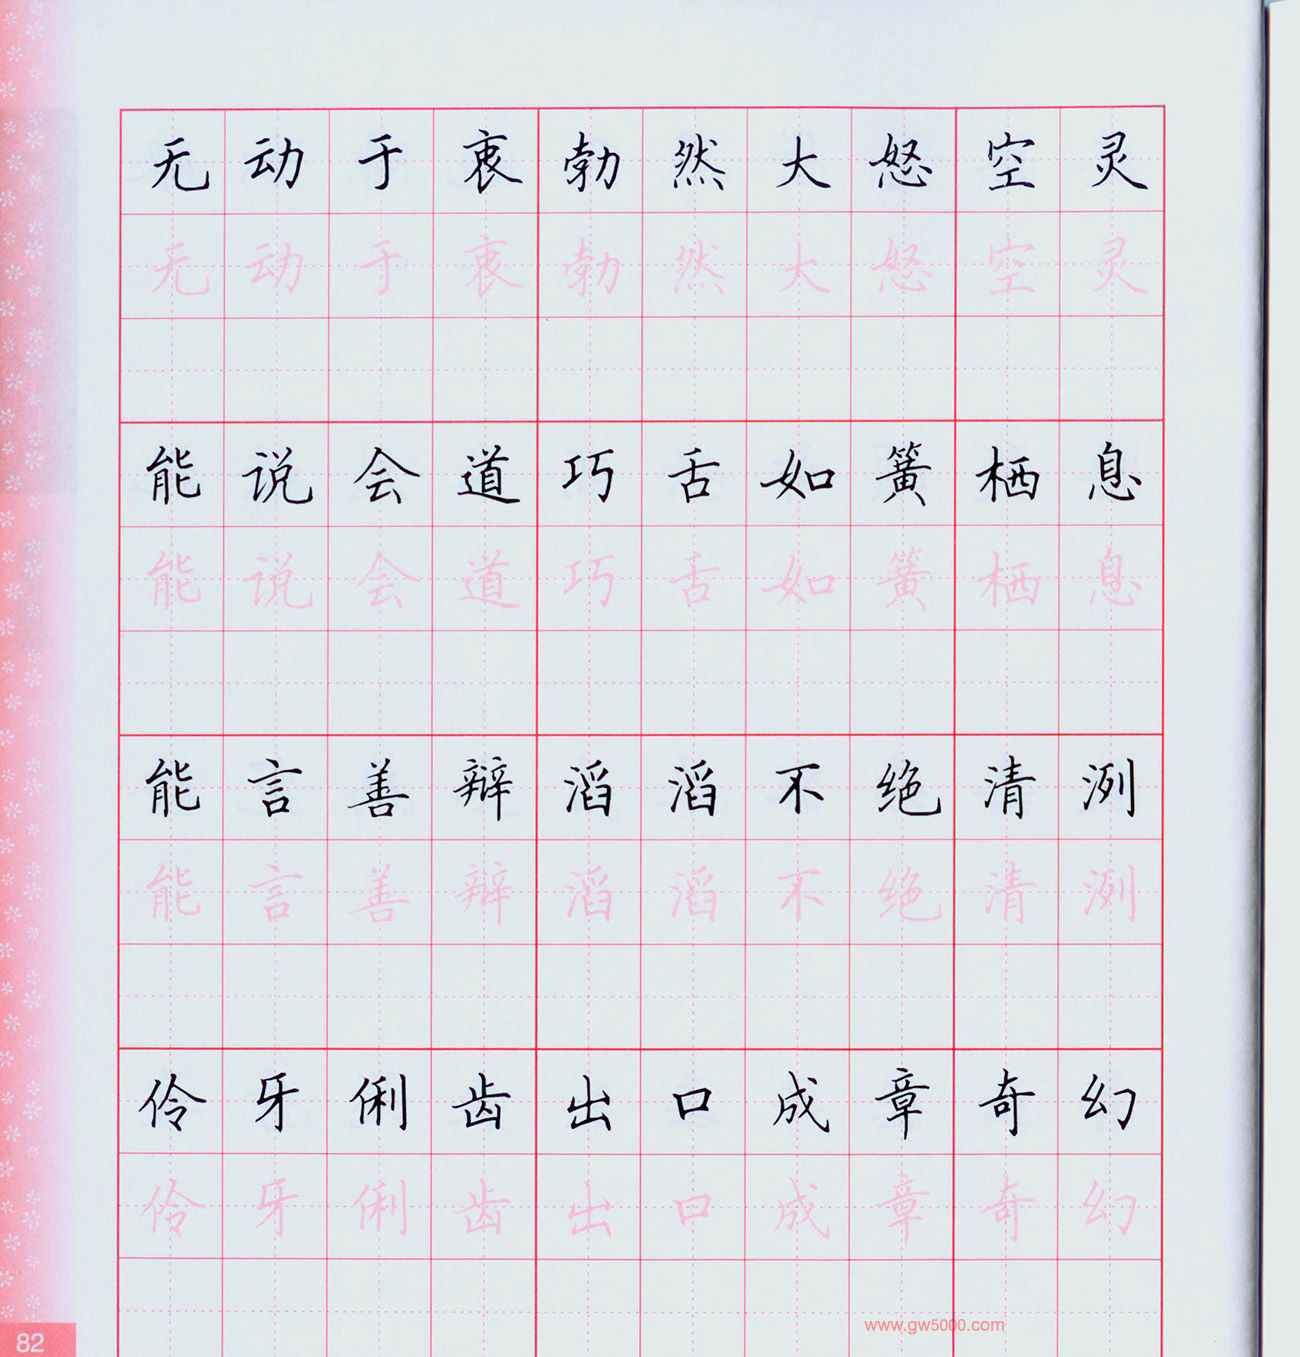 无动于衷勃然大怒空灵
无动于衷勃然大怒空灵
能说会道巧舌如簧栖息
能说会道巧舌如簧栖息
能言善辩滔滔不绝清洌
能言善辩滔滔不绝清洌
伶牙俐齿出口成章奇幻
伶牙俐齿出口成章奇幻
www.gw5000.com
82